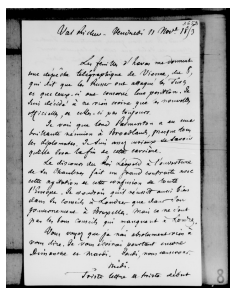 Val Richer. Vendredi 11 Nov. 1853
Les feuilles d'havas me donnent
une dépêche télégraphique de Vienne, du 8,
qui dit que les Russes ont attaqué les Turcs,
et que ceux-ci ont conservé leur position. Je
suis décidé à ne rien croire que les nouvelles
officielles, et celles-ci pas toujours.
Je vois que lord Palmerston a eu une
brillante réunion à Broadlands, presque tous
les diplomates. Je suis assez curieux de savoir
quelle sera la fin de cette carrière.
Le discours du Roi Léopold à l'ouverture
de ses Chambres fait un grand contraste avec
cette agitation et cette confusion de toute
l'Europe. Je voudrais qu'il réussît aussi bien
dans les conseils à Londres que dans son
gouvernement à Bruxelles. Mais ce ne sont
pas les bons conseils qui manquent à Londres.
Vous voyez que je n'ai absolument rien à
vous dire. Je vous écrirai pourtant encore
Dimanche et Mardi.
Midi.
Triste lettre et triste début
8